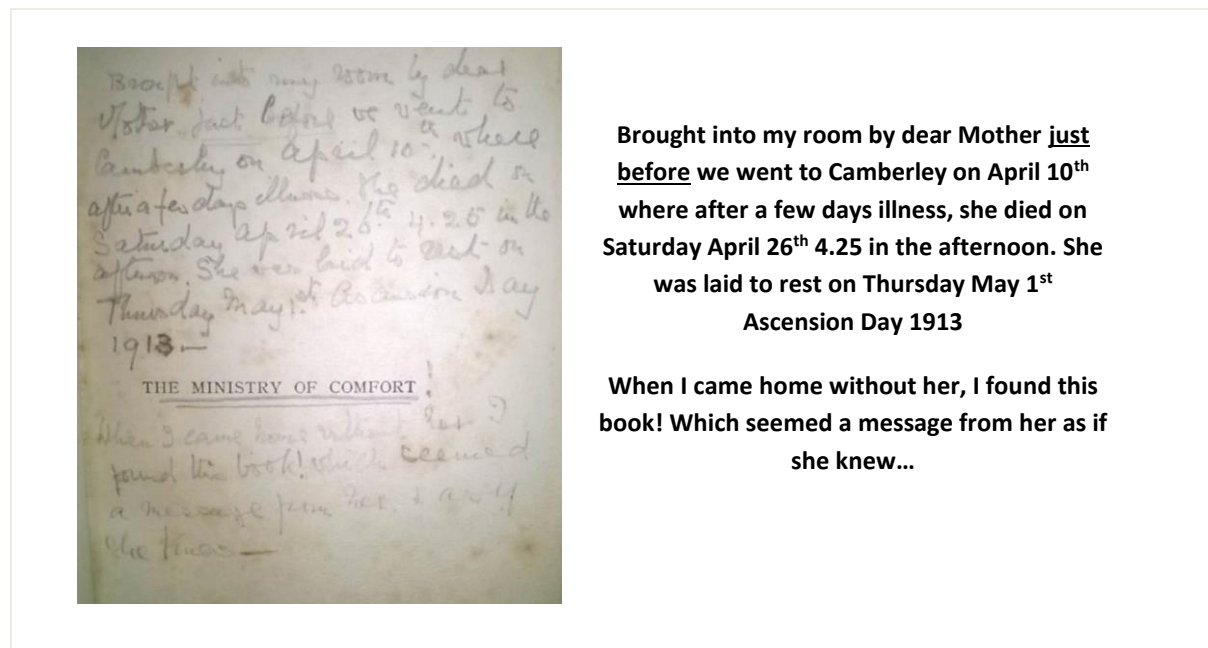 Brought into my room by dear
Mother just before we went to
Camberley on April 10th where
after a few days illness. She died on
Saturday April 26th 4.25 in the
afternoon. She was laid to rest on
Thursday May 1st Ascension Day
1913—
THE MINISTRY OF COMFORT!
When I came home without her I
found this book! which seemed
a message from her, & as if
she knew—
Brought into my room by dear Mother just
before we went to Camberley on April 10th
where after a few days illness, she died on
Saturday April 26th 4.25 in the afternoon. She
was laid to rest on Thursday May 1st
Ascension Day 1913
When I came home without her, I found this
book! Which seemed a message from her as if
she knew…